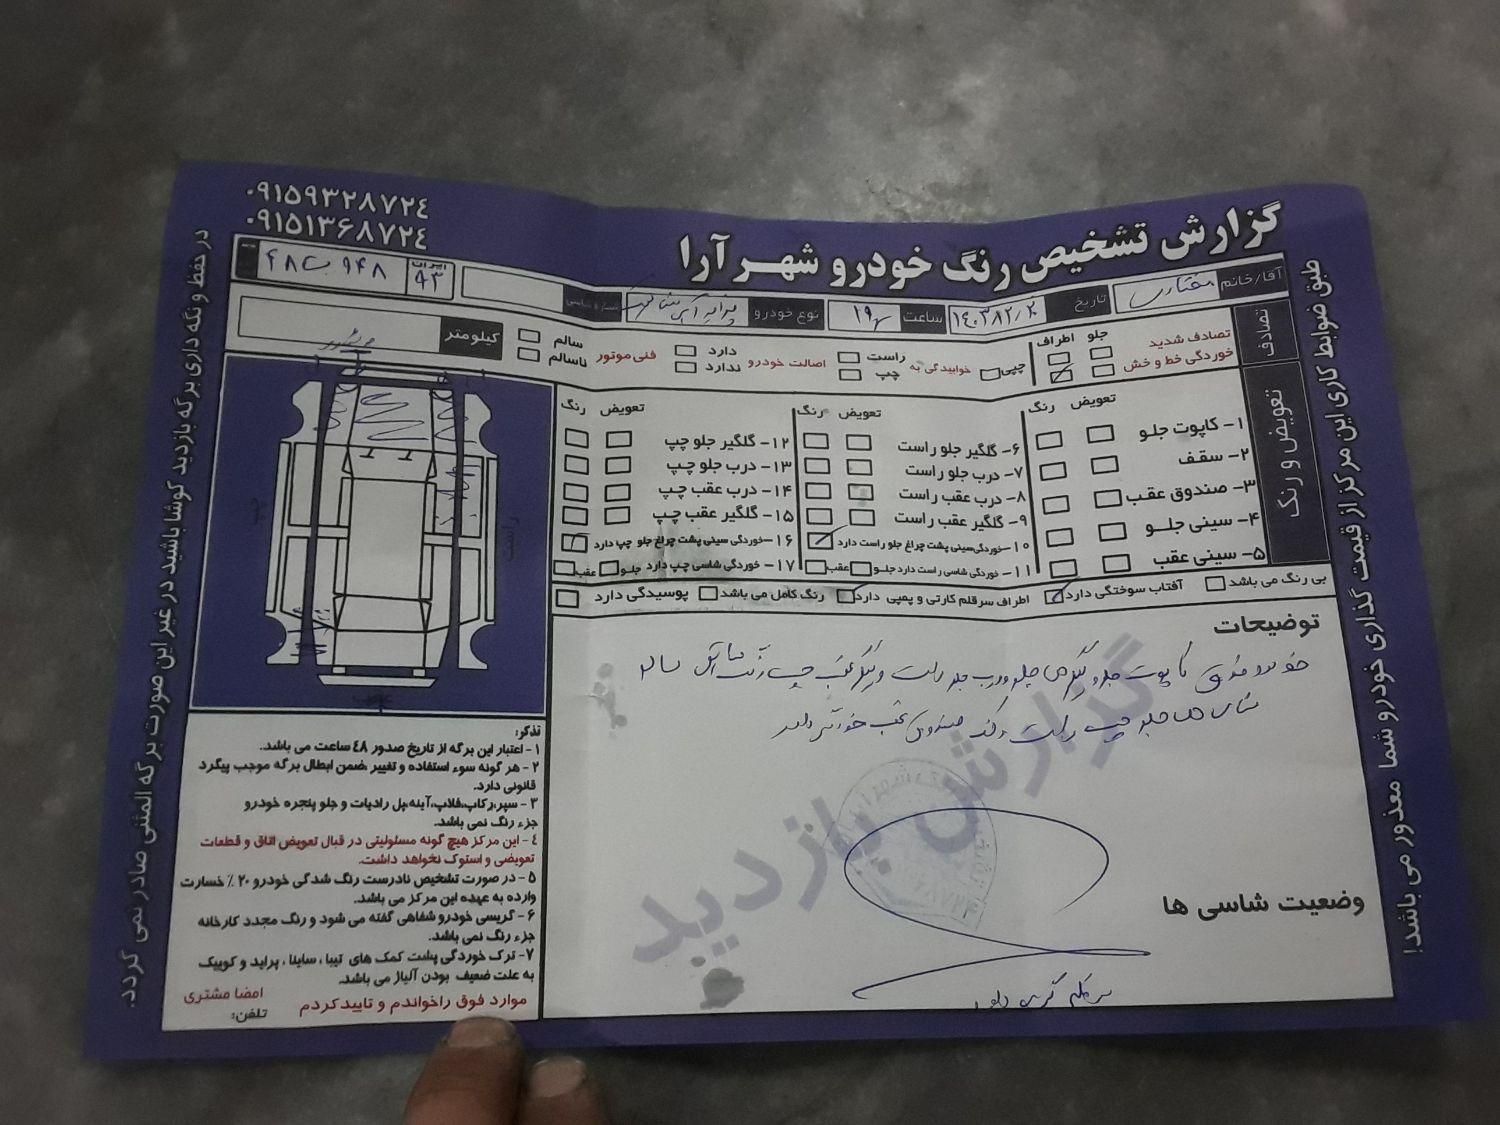 ۰۹۱۵۹۳۲۸۷۲٤
۰۹۱۵۱۳۶۸۷۲٤
گزارش تشخیص رنگ خودرو شهر آرا
آقا/خانم
تاریخ
ساعت ۱۹
نوع خودرو
ایران ۹۳
۹۴۸
۴۸
تصادف
تصادف شدید
خوردگی خط و خش
جلو
اطراف
چپی
خوابیدگی به
راست
چپ
اصالت خودرو
دارد
ندارد
فنی موتور
سالم
ناسالم
کیلومتر
تعویض و رنگ
تعویض رنگ
۱- کاپوت جلو
۲- سقف
۳- صندوق عقب
۴- سینی جلو
۵- سینی عقب
تعویض رنگ
۶- گلگیر جلو راست
۷- درب جلو راست
۸- درب عقب راست
۹- گلگیر عقب راست
۱۰- خوردگی سینی پشت چراغ جلو راست دارد
۱۱- خوردگی شاسی راست دارد جلو عقب
تعویض رنگ
۱۲- گلگیر جلو چپ
۱۳- درب جلو چپ
۱۴- درب عقب چپ
۱۵- گلگیر عقب چپ
۱۶- خوردگی سینی پشت چراغ جلو چپ دارد
۱۷- خوردگی شاسی چپ دارد جلو عقب
بی رنگ می باشد
آفتاب سوختگی دارد
اطراف سرقلم کارتی و پمپی دارد
رنگ کامل می باشد
پوسیدگی دارد
راست
چپ
عقب
توضیحات
گزارش بازدید
وضعیت شاسی ها
تذکر:
۱- اعتبار این برگه از تاریخ صدور ٤٨ ساعت می باشد.
۲- هر گونه سوء استفاده و تغییر ضمن ابطال برگه موجب پیگرد
قانونی دارد.
۳- سپر،رکاب،فلاپ،آینه،پل رادیات و جلو پنجره خودرو
جزء رنگ نمی باشد.
٤- این مرکز هیچ گونه مسئولیتی در قبال تعویض اتاق و قطعات
تعویضی و استوک نخواهد داشت.
۵- در صورت تشخیص نادرست رنگ شدگی خودرو ۲۰٪ خسارت
وارده به عهده این مرکز می باشد.
۶- گریسی خودرو شفاهی گفته می شود و رنگ مجدد کارخانه
جزء رنگ نمی باشد.
۷- ترک خوردگی پشت کمک های تیبا، ساینا، پراید و کوییک
به علت ضعیف بودن آلیاژ می باشد.
موارد فوق راخواندم و تاییدکردم
امضا مشتری
تلفن:
طبق ضوابط کاری این مرکز از قیمت گذاری خودرو شما معذور می باشد!
در حفظ و نگه داری برگه بازدید کوشا باشید در غیر این صورت برگه المثنی صادر نمی گردد.